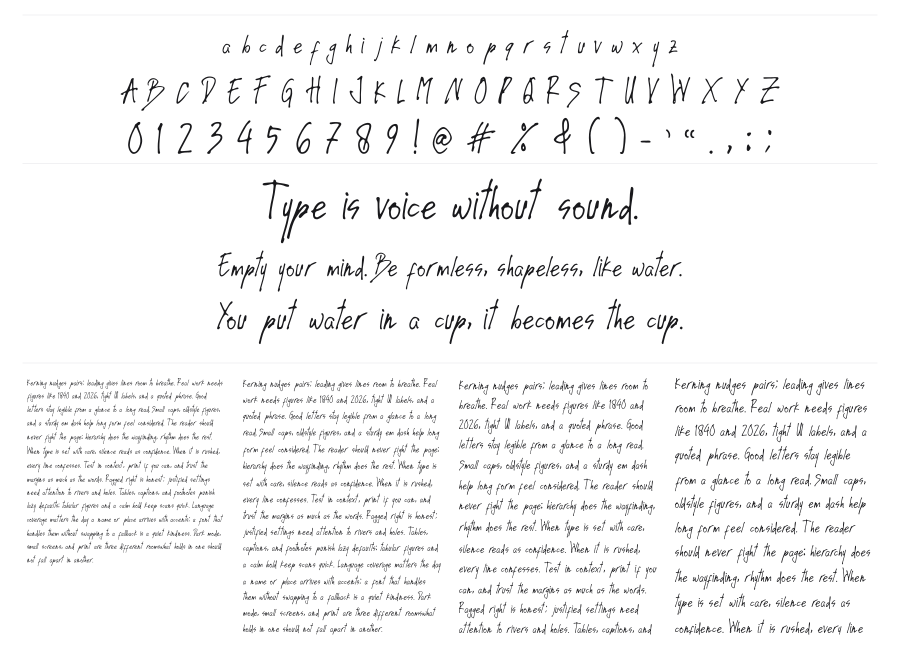 a b c d e f g h i j k l m n o p q r s t u v w x y z
A B C D E F G H I J K L M N O P Q R S T U V W X Y Z
0 1 2 3 4 5 6 7 8 9 ! @ # % & ( ) - ' " . , : ;
Type is voice without sound.
Empty your mind. Be formless, shapeless, like water.
You put water in a cup, it becomes the cup.
Kerning nudges pairs; leading gives lines room to breathe. Real work needs
figures like 1840 and 2026, tight UI labels, and a quoted phrase. Good
letters stay legible from a glance to a long read. Small caps, oldstyle figures,
and a sturdy em dash help long form feel considered. The reader should
never fight the page; hierarchy does the wayfinding, rhythm does the rest.
When type is set with care, silence reads as confidence. When it is rushed,
every line confesses. Test in context, print if you can, and trust the
margins as much as the words. Ragged right is honest; justified settings
need attention to rivers and holes. Tables, captions, and footnotes punish
lazy defaults; tabular figures and a calm bold keep scans quick. Language
coverage matters the day a name or place arrives with accents; a font that
handles them without swapping to a fallback is a quiet kindness. Dark mode,
small screens, and print are three different rooms; what holds in one should
not fall apart in another.
Kerning nudges pairs; leading gives lines room to breathe. Real
work needs figures like 1840 and 2026, tight UI labels, and a
quoted phrase. Good letters stay legible from a glance to a long
read. Small caps, oldstyle figures, and a sturdy em dash help long
form feel considered. The reader should never fight the page;
hierarchy does the wayfinding, rhythm does the rest. When type is
set with care, silence reads as confidence. When it is rushed,
every line confesses. Test in context, print if you can, and
trust the margins as much as the words. Ragged right is honest;
justified settings need attention to rivers and holes. Tables,
captions, and footnotes punish lazy defaults; tabular figures and
a calm bold keep scans quick. Language coverage matters the day
a name or place arrives with accents; a font that handles
them without swapping to a fallback is a quiet kindness. Dark
mode, small screens, and print are three different rooms; what
holds in one should not fall apart in another.
Kerning nudges pairs; leading gives lines room to
breathe. Real work needs figures like 1840 and
2026, tight UI labels, and a quoted phrase. Good
letters stay legible from a glance to a long read.
Small caps, oldstyle figures, and a sturdy em dash
help long form feel considered. The reader should
never fight the page; hierarchy does the wayfinding,
rhythm does the rest. When type is set with care,
silence reads as confidence. When it is rushed,
every line confesses. Test in context, print if you
can, and trust the margins as much as the words.
Ragged right is honest; justified settings need
attention to rivers and holes. Tables, captions, and
Kerning nudges pairs; leading gives lines
room to breathe. Real work needs figures
like 1840 and 2026, tight UI labels, and a
quoted phrase. Good letters stay legible
from a glance to a long read. Small caps,
oldstyle figures, and a sturdy em dash help
long form feel considered. The reader
should never fight the page; hierarchy does
the wayfinding, rhythm does the rest. When
type is set with care, silence reads as
confidence. When it is rushed, every line